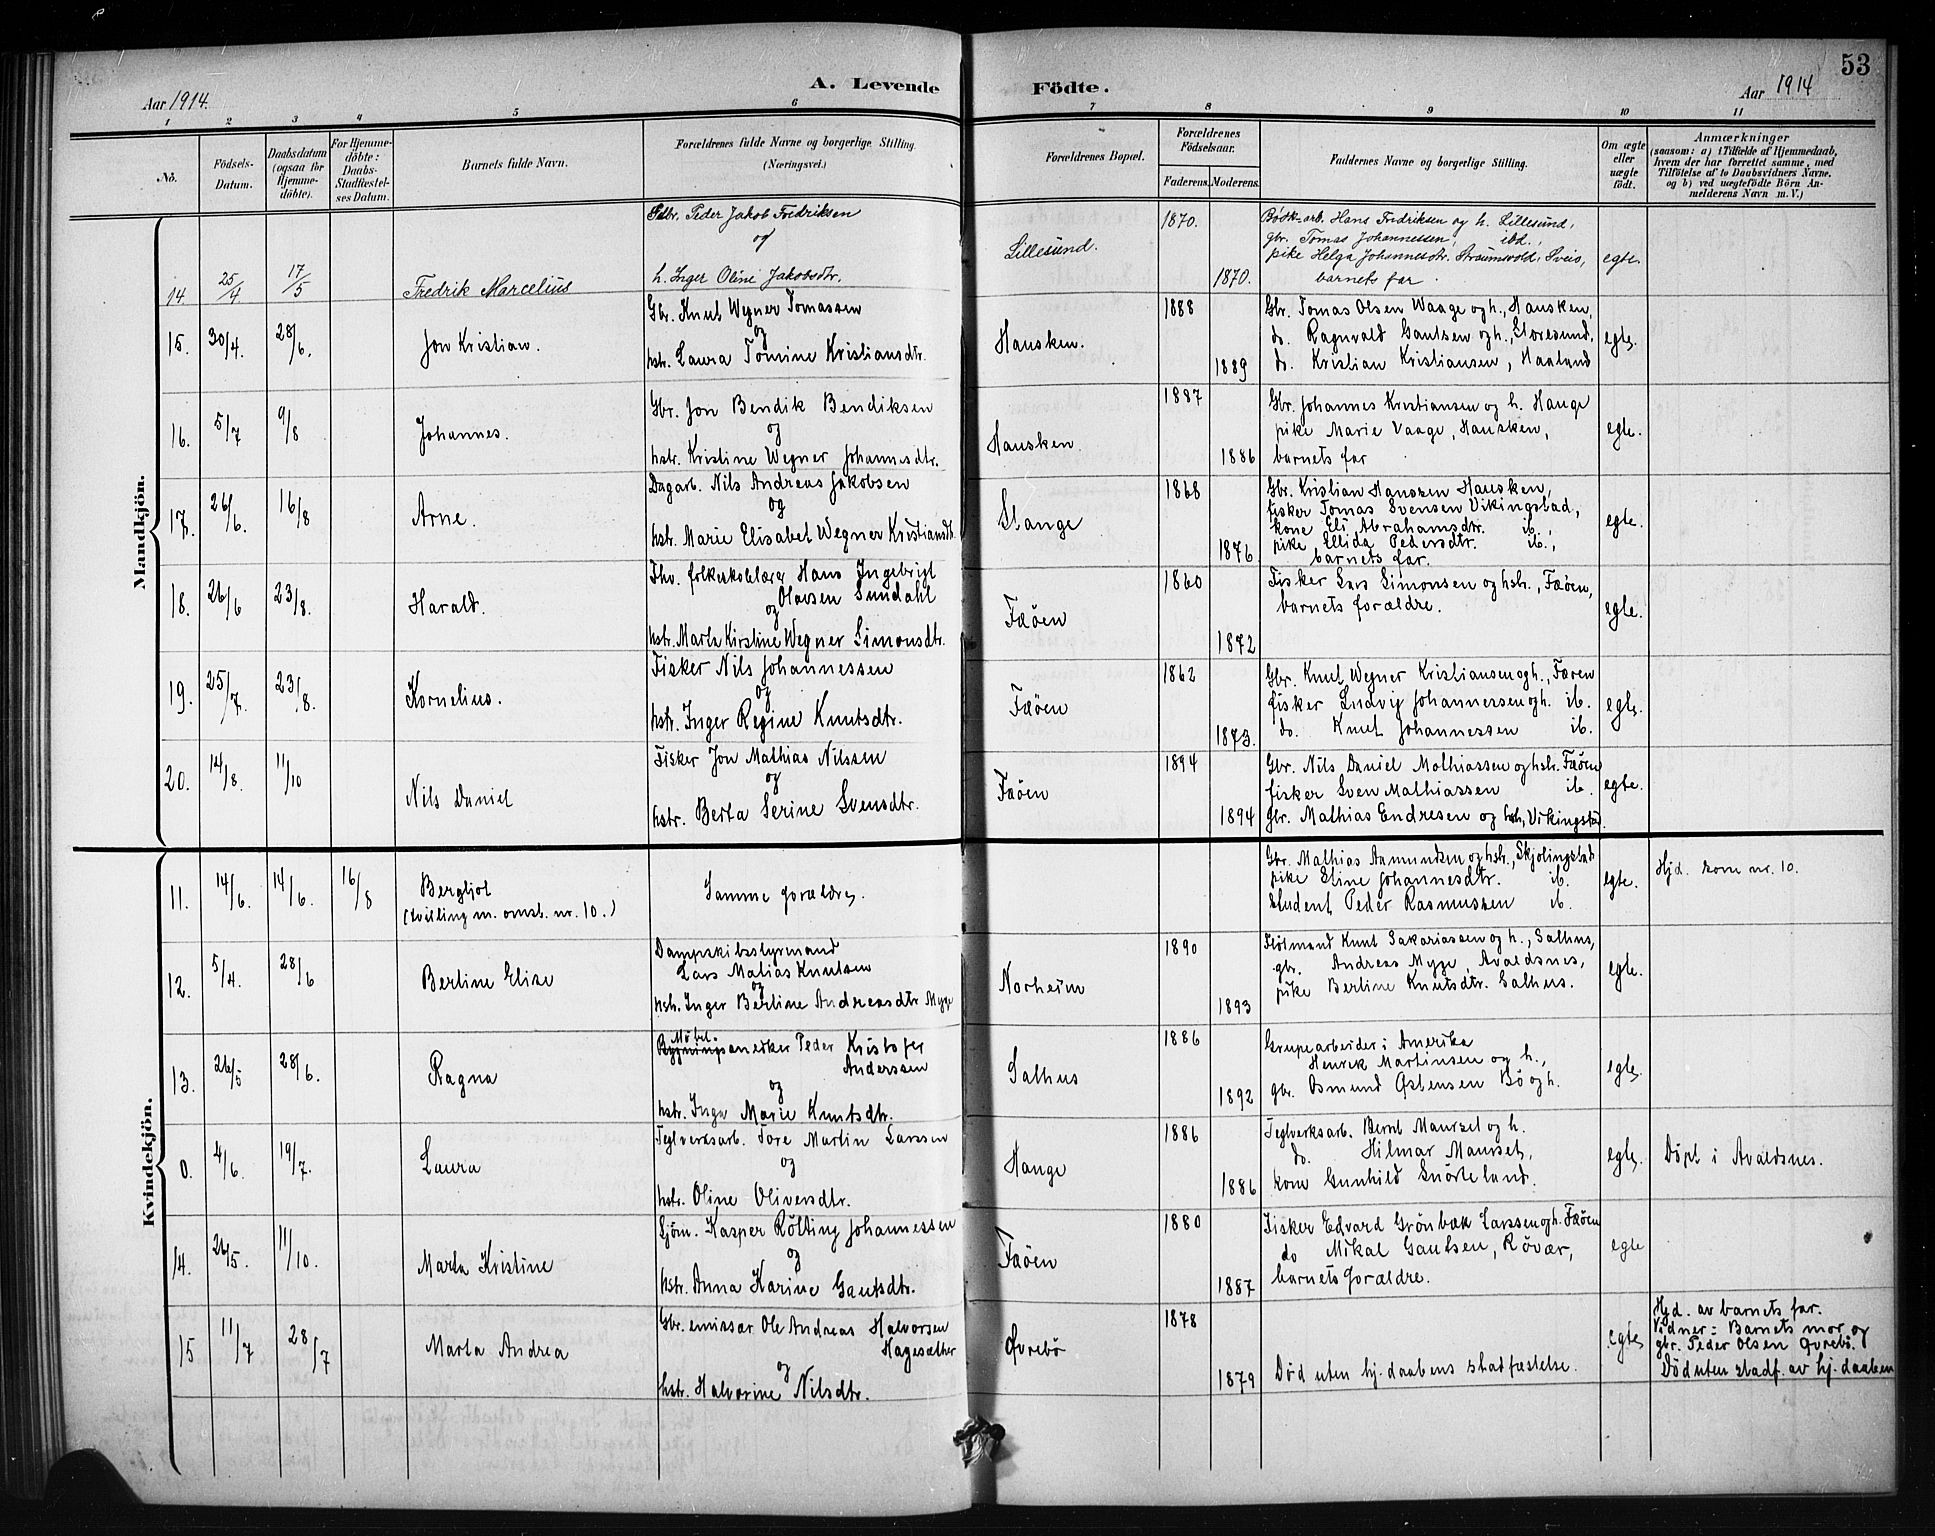 53
A. Levende Födte.
Aar 1914.
Aar 1914
1 2 3 4 5 6 7 8 9 10 11
No.
Födsels-Datum.
Daabsdatum (ogsaa for Hjemmedöbte).
For Hjemmedöbte: Daabs-Stadfæstelses Datum.
Barnets fulde Navn.
Forældrenes fulde Navne og borgerlige Stilling. (Næringsvei.)
Forældrenes Bopæl.
Forældrenes Födselsaar.
Faderens. Moderens.
Faddernes Navne og borgerlige Stilling.
Om ægte eller uægte födt.
Anmærkninger
(saasom: a) i Tilfælde af Hjemmedaab, hvem der har forrettet samme, med Tilföielse af to Daabsvidners Navne. og b) ved uægtefödte Börn Anmelderens Navn m. V.)
Mandkjön.
14. 25/4 17/5 Fredrik Marcelius
Peder Jakob Fredriksen
og
h. Inger Oline Jakobsdtr.
Lillesund. 1870. 1870.
arb. Hans Fredriksen og h. Lillesund,
gbr. Tomas Johannessen, ibd.,
pike Helga Johannesdtr. Sveio,
barnets far.
egte.
15. 30/4. 28/6. Jon Kristian.
Gbr. Knut Wegner Tomassen
og
hstr. Laura Tomine Kristiansdtr.
Hausken. 1888 1889
Gbr. Tomas Olsen Waage og h., Hausken,
do. Ragnvald Gautsen og h., Storesund,
do. Kristian Kristiansen, Haaland
egte.
16. 5/7 9/8 Johannes.
Gbr. Jon Bendik Bendiksen
og
hstr. Kristine Wegner Johannesdtr.
Hausken. 1887 1886
Gbr. Johannes Kristiansen og h. Hauge
pike Marie Vaage, Hausken,
barnets far
egte.
17. 26/6. 16/8 Arne.
Dagarb. Nils Andreas Jakobsen
og
hstr. Marie Elisabet Wegner Kristiansdtr.
Stange 1868 1876
Gbr. Kristian Hansen Hausken,
fisker Tomas Svensen Vikingstad,
kone Eli Abrahamsdtr. ib.,
pike Ellida Pedersdtr. ib.,
barnets far.
egte.
18. 26/6 23/8. Harald.
Fhv. folkeskolelærer Hans Ingebrigt
Olavsen Sundahl
og
hstr. Marta Kirstine Wegner Simonsdtr.
Fæøen 1860 1872
Fisker Lars Simonsen og hstr., Fæøen,
barnets forældre.
egte.
19. 25/7. 23/8. Kornelius.
Fisker Nils Johannessen
og
hstr. Inger Regine Knutsdtr.
Fæøen 1862 1873.
Gbr. Knut Wegner Kristiansen og h., Færen
fisker Ludvig Johannessen og h. ib.
do. Knut Johannessen ib.
egte.
20. 14/8. 11/10 Nils Daniel
Fisker Jon Mathias Nilssen
og
hstr. Berta Serine Svensdtr.
Fæøen 1894 1894
Gbr. Nils Daniel Mathiassen og hstr. Fæøen
fisker Sven Mathiassen ib.
gbr. Mathias Endresen og hstr., Vikingstad.
egte.
Kvindekjön.
11. 14/6. 14/6. 16/8 Bergljot
(tvilling m. omst. nr. 10.)
Samme forældre.
Gbr. Mathias Aamundsen og hstr., Skjolingstad
pike Eline Johannesdtr. ib.
student Peder Rasmussen ib.
egte.
Hjd. som nr. 10.
12. 5/4. 28/6 Berline Elise
Dampskibsstyrmand
Lars Matias Knutsen
og
hstr. Inger Berline Andreasdtr Myge
Norheim 1890 1893
Flötmand Knut Sakariassen og h., Salhus,
gbr. Andreas Myge, Avaldsnes,
pike Berline Knutsdtr. Salhus.
egte.
13. 26/5 28/6. Ragna
Møbel-
snekker Peder Kristofer
Anderssen
og
hstr. Inga Marie Knutsdtr.
Salhus 1886 1892
Grupearbeider i Amerika
Henrik Martinsen og h.,
gbr. Osmund Østensen Bö og h.
egte.
0. 4/6. 19/7. Laura
Teglverksarb. Tore Martin Larssen
og
hstr. Oline Oliversdtr.
Hauge 1886 1886
Teglverksarb. Bernt Maurset og h.
do. Hilmar Maurset,
kone Gunhild Snörteland.
egte.
Döpt i Avaldsnes.
14. 26/5. 11/10. Marta Kristine
Sjöm. Kasper Rötting Johannessen
og
hstr. Anna Karine Gautsdtr.
Fæøen 1880 1887
Fisker Edvard Grönbæk Larssen og h. Fæøen
do Mikal Gautsen, Røvær,
barnets forældre.
egte
15 11/7 28/7 Marta Andrea
Gbr. emissær Ole Andreas Halvorsen
Hagesæther
og
hstr. Halvorine Nilsdtr.
Øvrebö 1878 1879
Död uten hj. daabens stadfæstelse.
egte
Hjd. av barnets far.
Vidner: Barnets mor og
gbr. Peder Olsen Øvrebö.
Död uten stadf. av hj. daaben